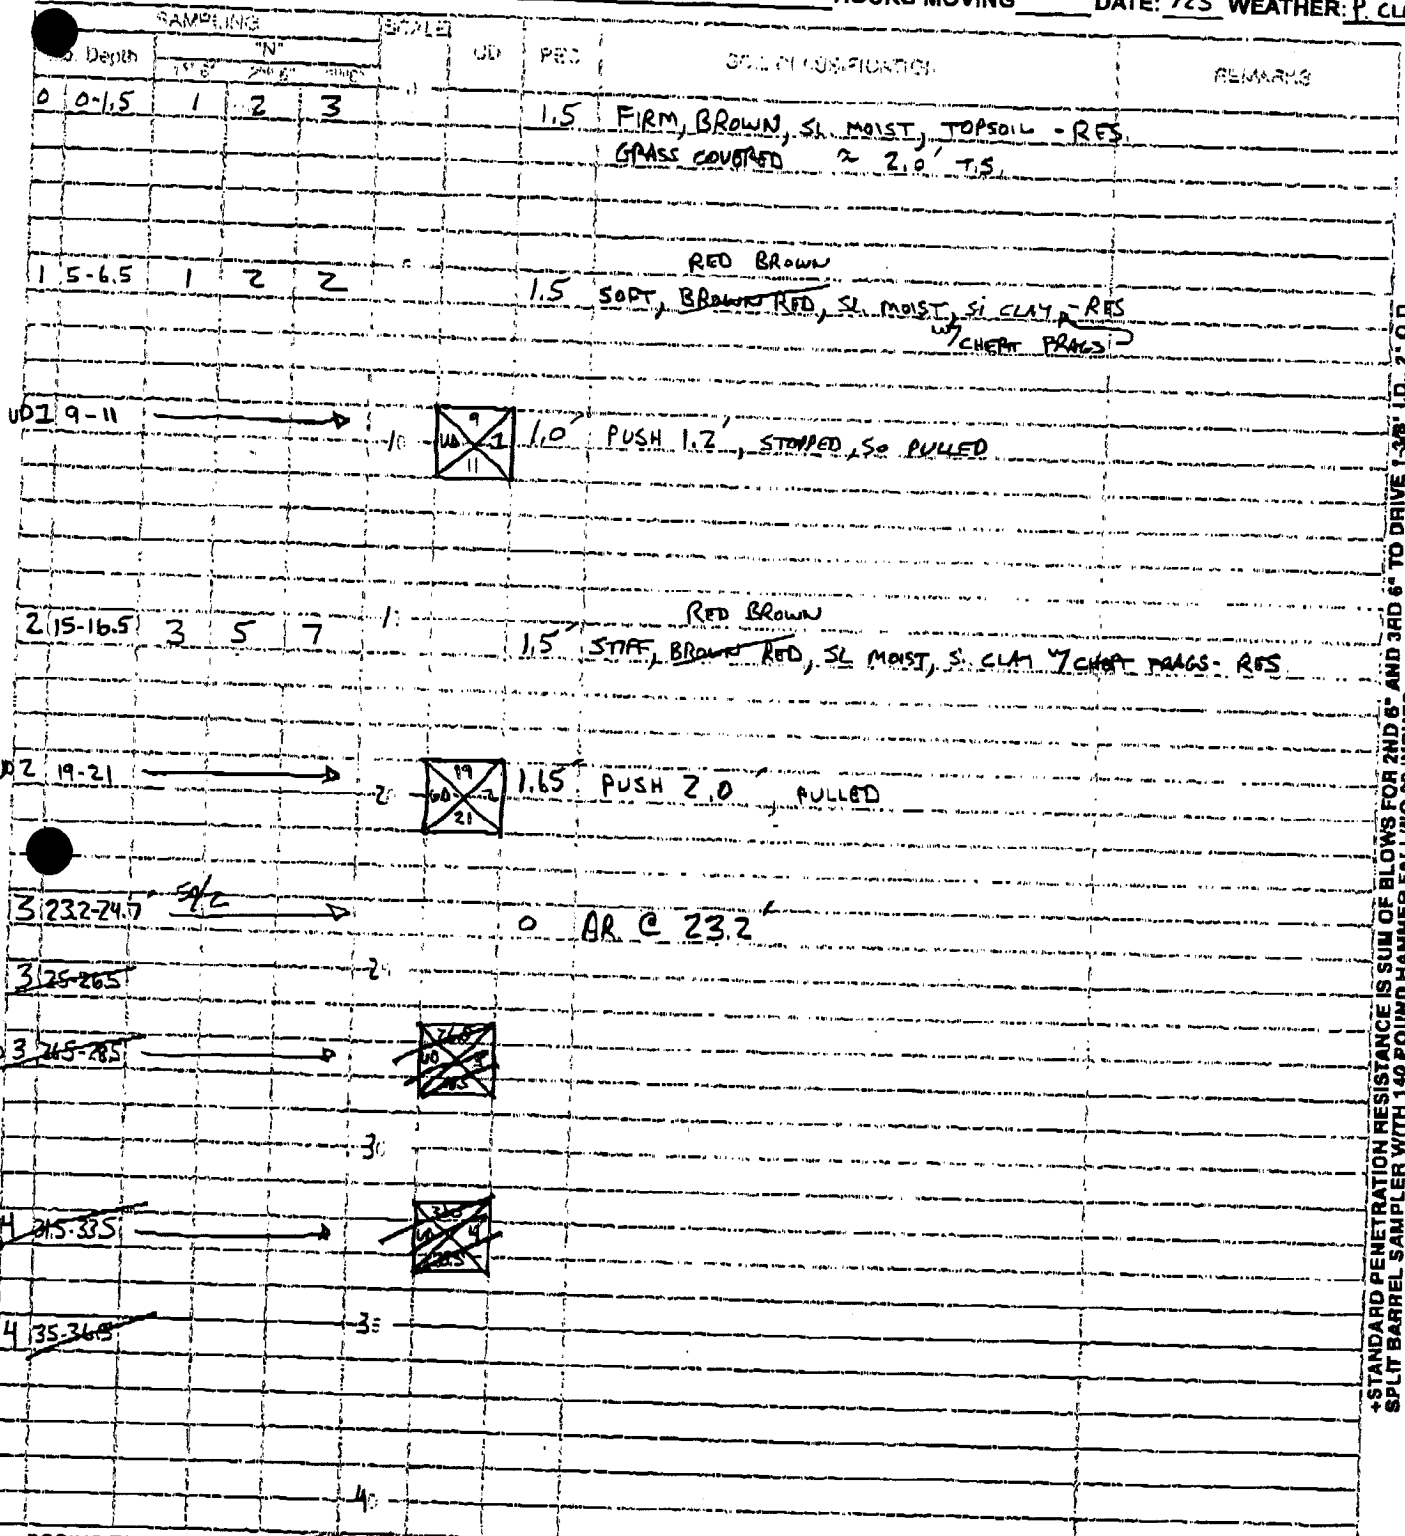 HOURS MOVING DATE: 7/25 WEATHER: P. CL
SAMPLING SCALE UD REC SOIL CLASSIFICATION REMARKS
Depth "N"
1st 6" 2nd 6"
0 0-1.5 1 2 3 1.5 FIRM, BROWN, SL. MOIST, TOPSOIL - RES.
GRASS COVERED ≈ 2.0' T.S.
RED BROWN
1 5-6.5 1 2 2 1.5 SOFT, BROWN RED, SL. MOIST, Si CLAY - RES
w/ CHERT FRAGS
UD1 9-11 10 9 UD 1 11 1.0' PUSH 1.2', STOPPED, SO PULLED
RED BROWN
2 15-16.5 3 5 7 1.5' STIFF, BROWN RED, SL MOIST, Si CLAY w/ CHERT FRAGS - RES
D2 19-21 20 19 UD 2 21 1.65' PUSH 2.0', PULLED
3 23.2-24.7' 0 AR @ 23.2'
3 25-26.5
3 26.5-28.5 26.5 UD 3 28.5
30
4 31.5-33.5 31.5 UD 4 33.5
4 35-36.5 35
40
+STANDARD PENETRATION RESISTANCE IS SUM OF BLOWS FOR 2ND 6" AND 3RD 6" TO DRIVE 1-3/8" I.D., 2" O.D.
SPLIT BARREL SAMPLER WITH 140 POUND HAMMER FALLING